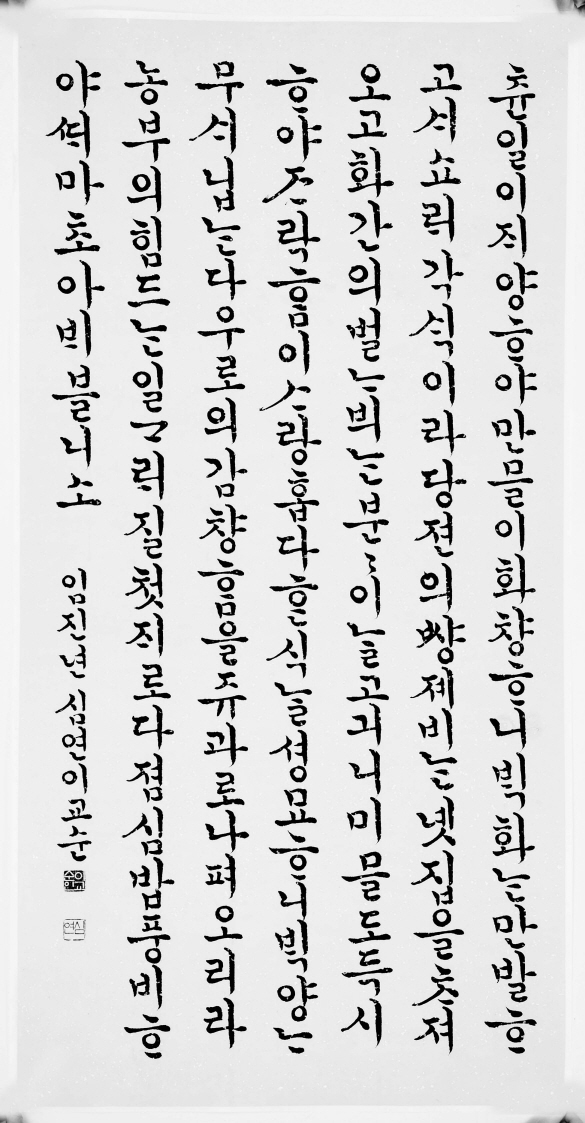 츈일이ᄌᆡ양ᄒᆞ야만믈이화챵ᄒᆞ니ᄇᆡᆨ화ᄂᆞᆫ만발ᄒᆞ
고ᄉᆡ쇼ᄅᆡ각ᄉᆡᆨ이라당젼의쌍졔비ᄂᆞᆫ녯집을ᄎᆞ져
오고화간의벌ᄂᆞᄇᆡᄂᆞᆫ분〃이ᄂᆞᆯ고긔니미믈도득시
ᄒᆞ야ᄌᆞ락ᄒᆞᆷ이ᄉᆞ랑홉다ᄒᆞᆫ식ᄂᆞᆯ셩묘ᄒᆞ니ᄇᆡᆨ양ᄂᆞ
무ᄉᆡ닙ᄂᆞᆫ다우로의감챵ᄒᆞᆷ을쥬과로나펴오리라
농부의힘드ᄂᆞᆫ일ᄀᆞᄅᆡ질첫ᄌᆡ로다졈심밥풍비ᄒᆞ
야ᄯᆡ마초아ᄇᆡ블니소 임진년 심연 이교순